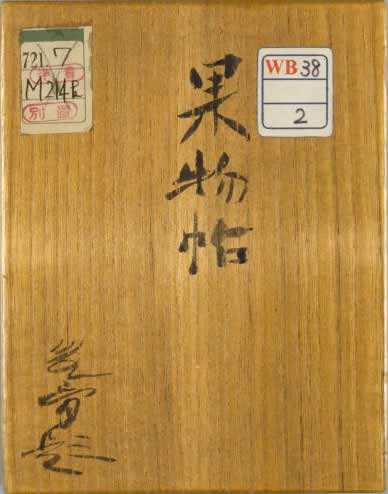 721.7
M214
別置
WB38
2
果物帖